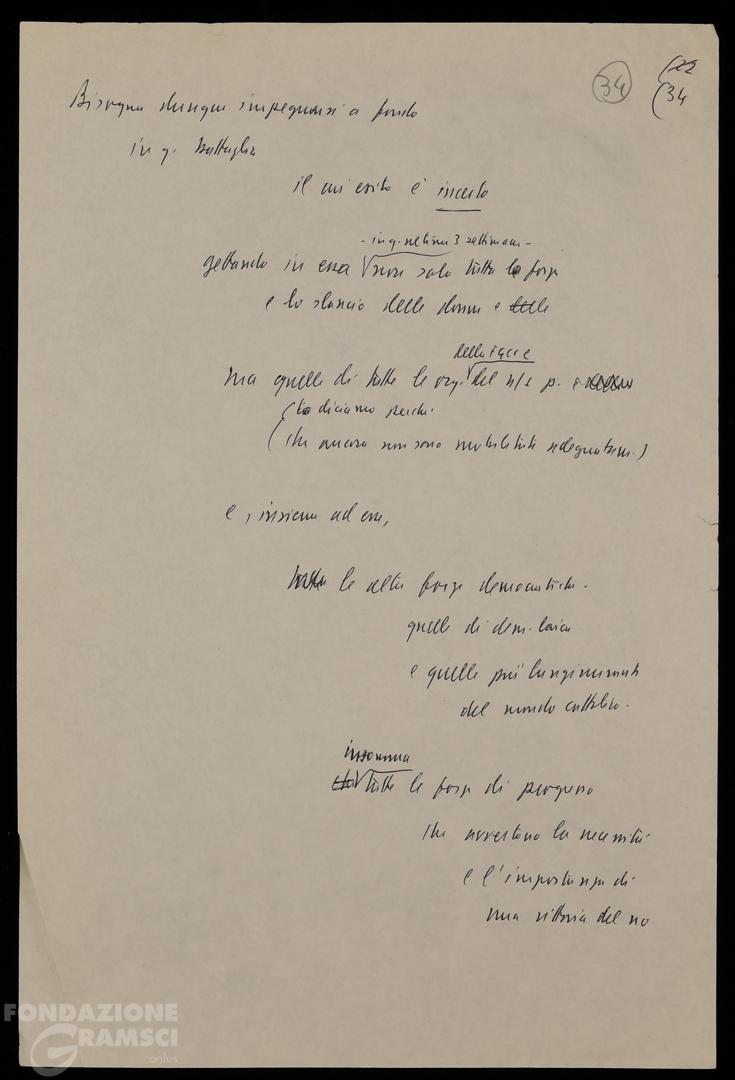 34
(22
(34
Bisogna dunque impegnarsi a fondo
in q. battaglia
il cui esito è incerto
- in q. ultime 3 settimane -
gettando in essa non solo tutta la forza
e lo slancio delle donne e delle
della FGCI e
ma quelle di tutte le org. del n/s p.
(lo diciamo perché
(che ancora non sono mobilitate adeguatam.)
e, insieme ad esse,
tutte le altre forze democratiche -
quelle di dem. laica
e quelle più lungimiranti
del mondo cattolico -
insomma
tutte le forze di progresso
che avvertono la necessità
e l'importanza di
una vittoria del no
FONDAZIONE
GRAMSCI
onlus